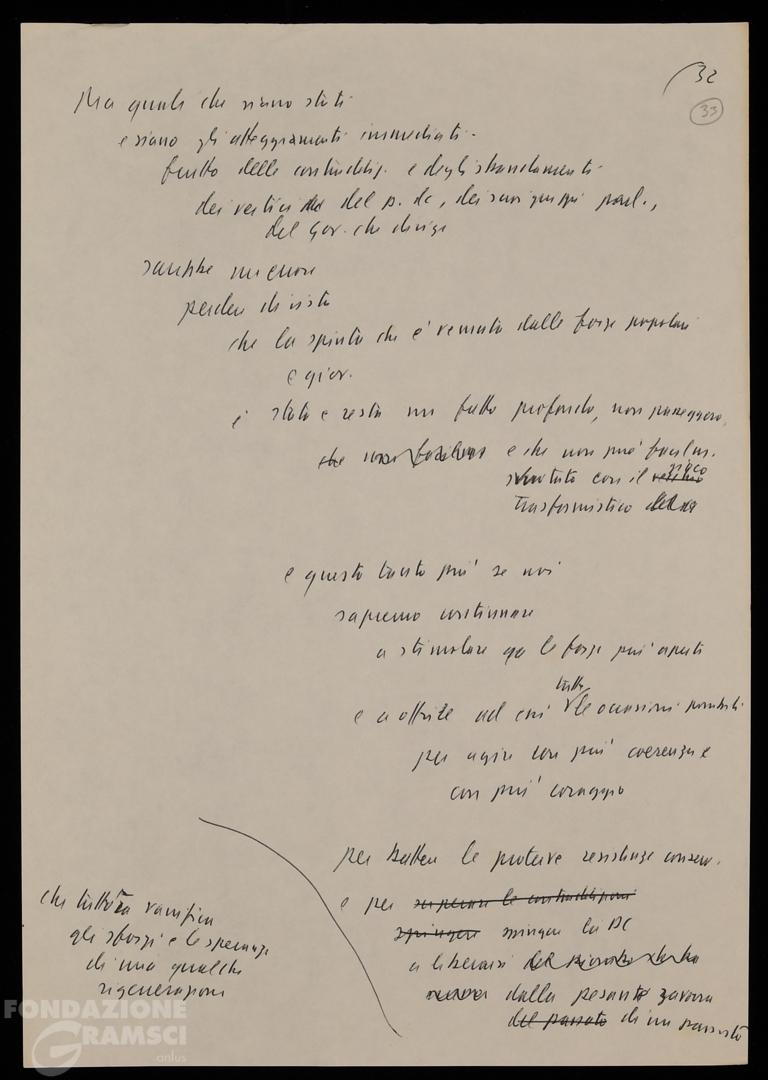 32
33
Ma quali che siano stati
e siano gli atteggiamenti immediati
frutto delle contraddiz. e degli sbandamenti
dei vertici del p. dc, dei suoi gruppi parl.,
del Gov. che dirige
sarebbe un errore
perdere di vista
che la spinta che è venuta dalle forze popolari
e giov.
è stata e resta un fatto profondo, non passeggero,
che non e che non può
svuotato con il vecchio gioco
trasformistico
e questo tanto più se noi
sapremo continuare
a stimolare le forze più aperte
e a offrire ad essi tutte le occasioni possibili
per agire con più coerenza e
con più coraggio
per battere le protervie resistenze conserv.
e per superare le contraddizioni
spingere spingere la DC
a liberarsi
dalla pesante zavorra
del passato di un passato
che tuttora vanifica
gli sforzi e le speranze
di una qualche
rigenerazione
FONDAZIONE
GRAMSCI
onlus